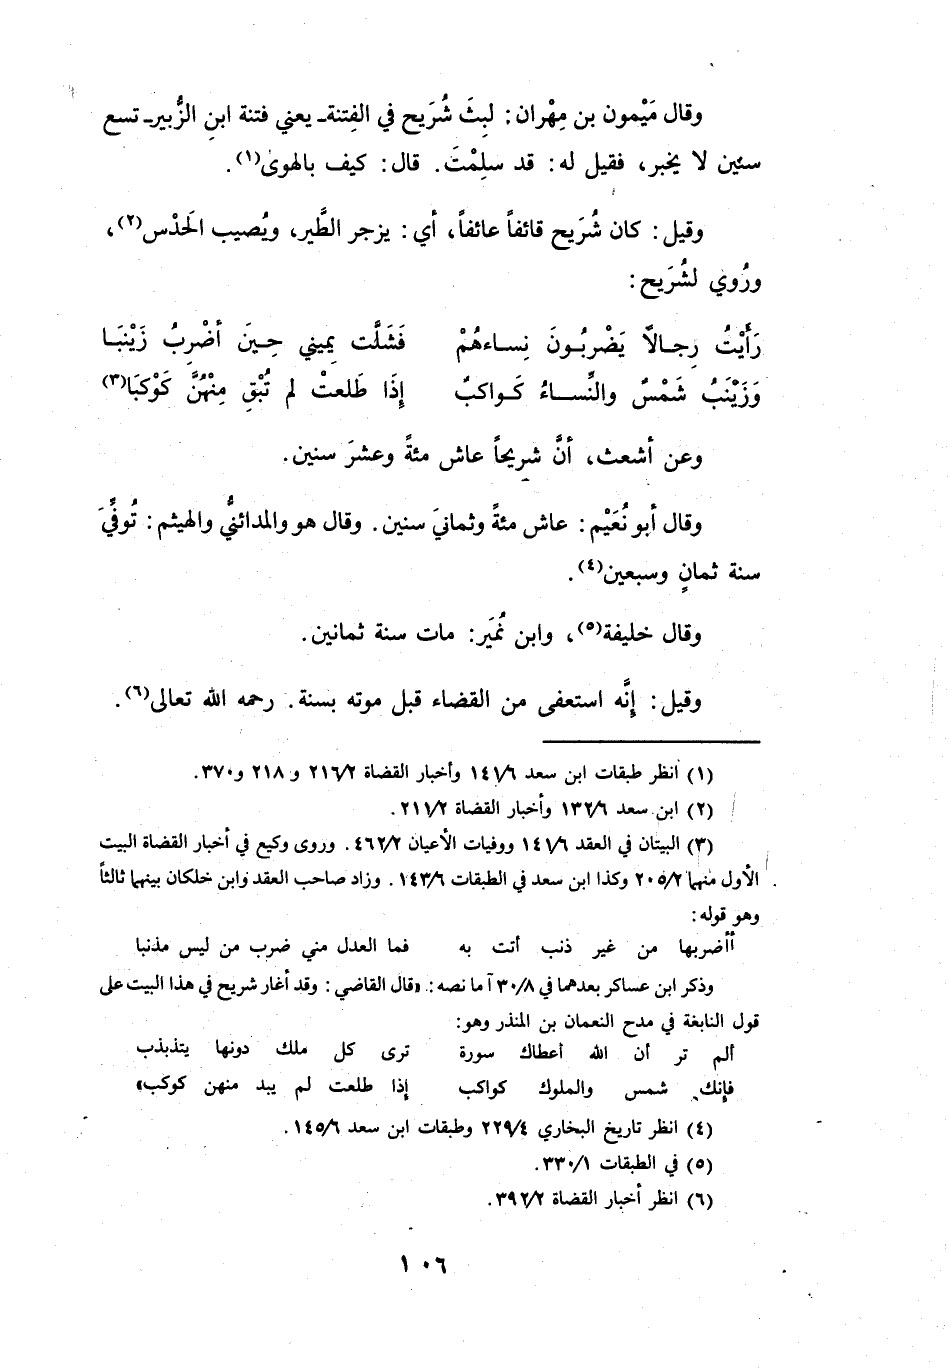 وقال مَيْمون بن مِهْران: لبِثَ شُرَيح في الفِتنة ـ يعني فتنة ابنِ الزُّبير ـ تسع
سنين لا يخبر، فقيل له: قد سلِمْتَ. قال: كيف بالهوىٰ(١).
وقيل: كان شُرَيح قائفاً عائفاً، أي: يزجر الطَّير، ويُصيب الحَدْس(٢)،
ورُوي لشُرَيح:
رَأَيْتُ رِجـالاً يَضْرِبُـونَ نِسـاءهُمْ فَشَلَّت يمِيني حِـينَ أضْرِبُ زَيْنَبَـا
وَزَيْنَبُ شَمْسٌ والنِّسـاءُ كَـواكبٌ إذَا طَلعتْ لم تُبْقِ مِنْهُنَّ كَوْكبَا(٣)
وعن أشعث، أنَّ شريحاً عاش مئةً وعشرَ سنين.
وقال أبو نُعَيْم: عاش مئةً وثمانيَ سنين. وقال هو والمدائنيُّ والهيثم: تُوفِّيَ
سنة ثمانٍ وسبعين(٤).
وقال خليفة(٥)، وابن نُمَير: مات سنة ثمانين.
وقيل: إنَّه استعفى من القضاء قبل موته بسنة. رحمه الله تعالى(٦).
(١) انظر طبقات ابن سعد ١٤١/٦ وأخبار القضاة ٢١٦/٢ و ٢١٨ و٣٧٠.
(٢) ابن سعد ١٣٢/٦ وأخبار القضاة ٢١١/٢.
(٣) البيتان في العقد ١٤١/٦ ووفيات الأعيان ٤٦٢/٢. وروى وكيع في أخبار القضاة البيت
الأول منهما ٢٠٥/٢ وكذا ابن سعد في الطبقات ١٤٣/٦. وزاد صاحب العقد وابن خلكان بينهما ثالثاً
وهو قوله:
أأضربها من غير ذنب أتت به فما العدل مني ضرب من ليس مذنبا
وذكر ابن عساكر بعدهما في ٣٠/٨ آ ما نصه: «قال القاضي: وقد أغار شريح في هذا البيت على
قول النابغة في مدح النعمان بن المنذر وهو:
ألم تر أن الله أعطاك سورة ترى كل ملك دونها يتذبذب
فإنك شمس والملوك كواكب إذا طلعت لم يبد منهن كوكب»
(٤) انظر تاريخ البخاري ٢٢٩/٤ وطبقات ابن سعد ١٤٥/٦.
(٥) في الطبقات ٣٣٠/١.
(٦) انظر أخبار القضاة ٣٩٢/٢.
١٠٦